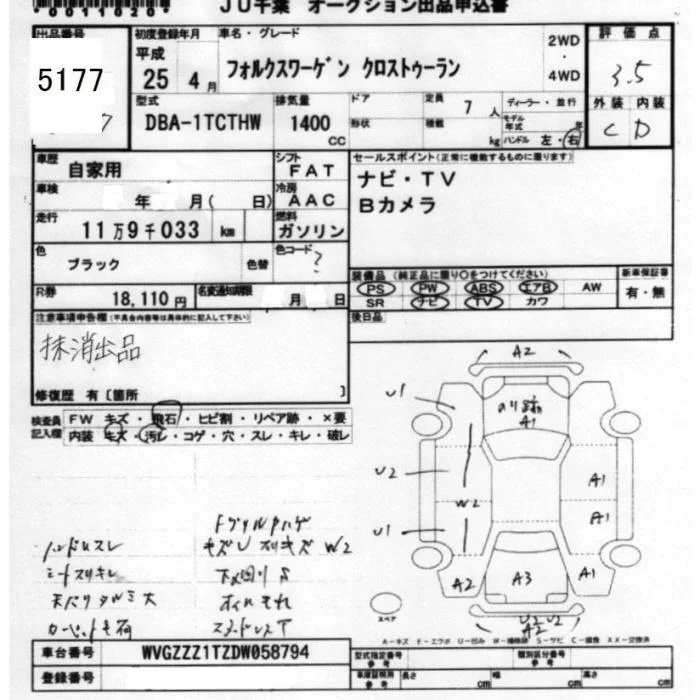 *0011020*
JU千葉 オークション出品申込書
出品番号
5177
初度登録年月
平成
25 4月
車名・グレード
フォルクスワーゲン クロストゥーラン
2WD
・
4WD
評価点
3.5
外装 内装
C D
型式
DBA-1TCTHW
排気量
1400
CC
ドア
形状
定員 7人
積載 kg
ディーラー・並行
モデル年式 年
ハンドル 左・右
車歴
自家用
シフト
FAT
車検
年 月( 日)
冷房
AAC
走行
11万9千033 km
燃料
ガソリン
色
ブラック
色替
色コード
?
R券
18,110円
名変通知期限
月 日
セールスポイント(正常に機能するものに限ります)
ナビ・TV
Bカメラ
装備品 (純正品に限り○をつけてください)
PS PW ABS エアB AW
SR ナビ TV カワ
新車保証書
有・無
後日品
注意事項申告欄(不具合内容等は具体的に記入して下さい)
抹消出品
修復歴 有〔箇所 〕
検査員
記入欄
FW キズ・飛石・ヒビ割・リペア跡・×要
内装 キズ・汚レ・コゲ・穴・スレ・キレ・破レ
A2
U1
A1
U2
W2
A1
A1
U1
A2
A3
A1
U2 U2
A2
スペア
ハンドルスレ
シートスリキレ
キズU スリキズ W2
A-キズ E-エクボ U-凹み W-補修跡 S-サビ C-腐食 XX-交換済
車台番号
WVGZZZ1TZDW058794
登録番号
型式指定番号
参考
類別区分番号
参考
車庫証明用
参考
長さ cm
幅 cm
高さ cm